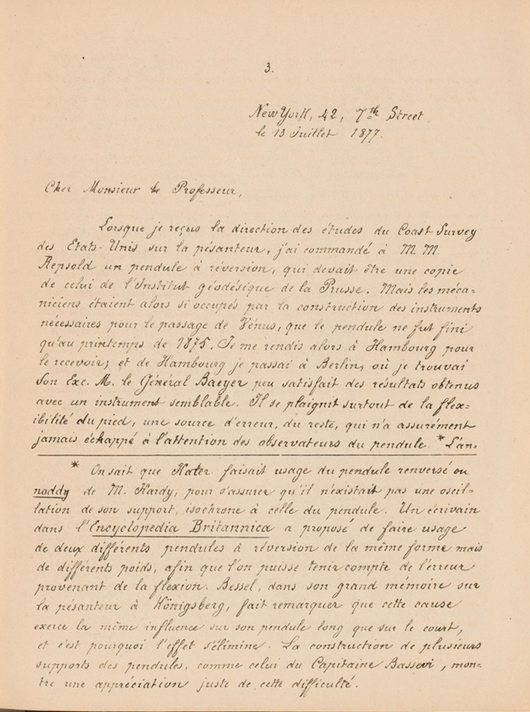 3.
New York, 42, 7th Street,
le 13 Juillet 1877.
Cher Monsieur le Professeur,
Lorsque je reçus la direction des études du Coast Survey
des Etats-Unis sur la pésanteur, j'ai commandé à M. M.
Repsold un pendule à réversion, qui devait être une copie
de celui de l'Institut géodésique de la Prusse. Mais les méca-
niciens étaient alors si occupés par la construction des instruments
nécessaires pour le passage de Vénus, que le pendule ne fut fini
qu'au printemps de 1875. Je me rendis alors à Hambourg pour
le recevoir; et de Hambourg je passai à Berlin, où je trouvai
Son Exc. M. le Général Baeyer peu satisfait des résultats obtenus
avec un instrument semblable. Il se plaignit surtout de la flex-
ibilité du pied, une source d'erreur, du reste, qui n'a assurément
jamais échappé à l'attention des observateurs du pendule. * L'an-
* On sait que Kater faisait usage du pendule renversé ou
noddy de M. Hardy, pour s'assurer qu'il n'existait pas une oscil-
lation de son support, isochrone à celle du pendule. Un écrivain
dans l'Encyclopedia Britannica a proposé de faire usage
de deux différents pendules à réversion de la même forme mais
de différents poids, afin que l'on puisse tenir compte de l'erreur
provenant de la flexion. Bessel, dans son grand mémoire sur
la pésanteur à Königsberg, fait remarquer que cette cause
exerce la même influence sur son pendule long que sur le court,
et c'est pourquoi l'effet s'élimine. La construction de plusieurs
supports des pendules, comme celui du Capitaine Bassevi, mon-
tre une appréciation juste de cette difficulté.